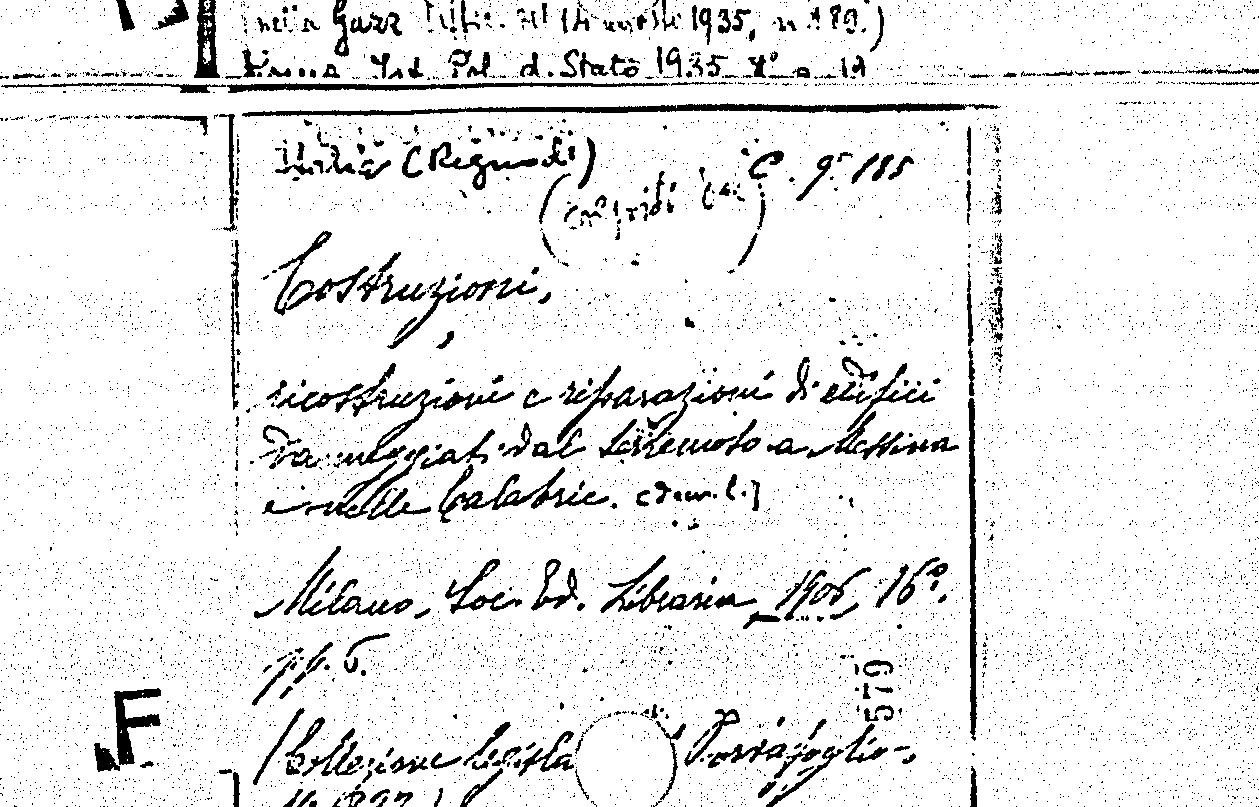 nella Gazz. Uffic. del 14 agosto 1935, n. 189.)
Roma Ist. Pol. d. Stato 1935 8° p. 12
Italia (Regno di)
C. 9. 185
Costruzioni,
ricostruzioni e riparazioni di edifici
danneggiati dal terremoto a Messina
e nelle Calabrie. [Decr. l.]
Milano, Soc. Ed. Libraria, 1906, 16°.
pp. 6.
579
F
(Collezione legisla Portafoglio,